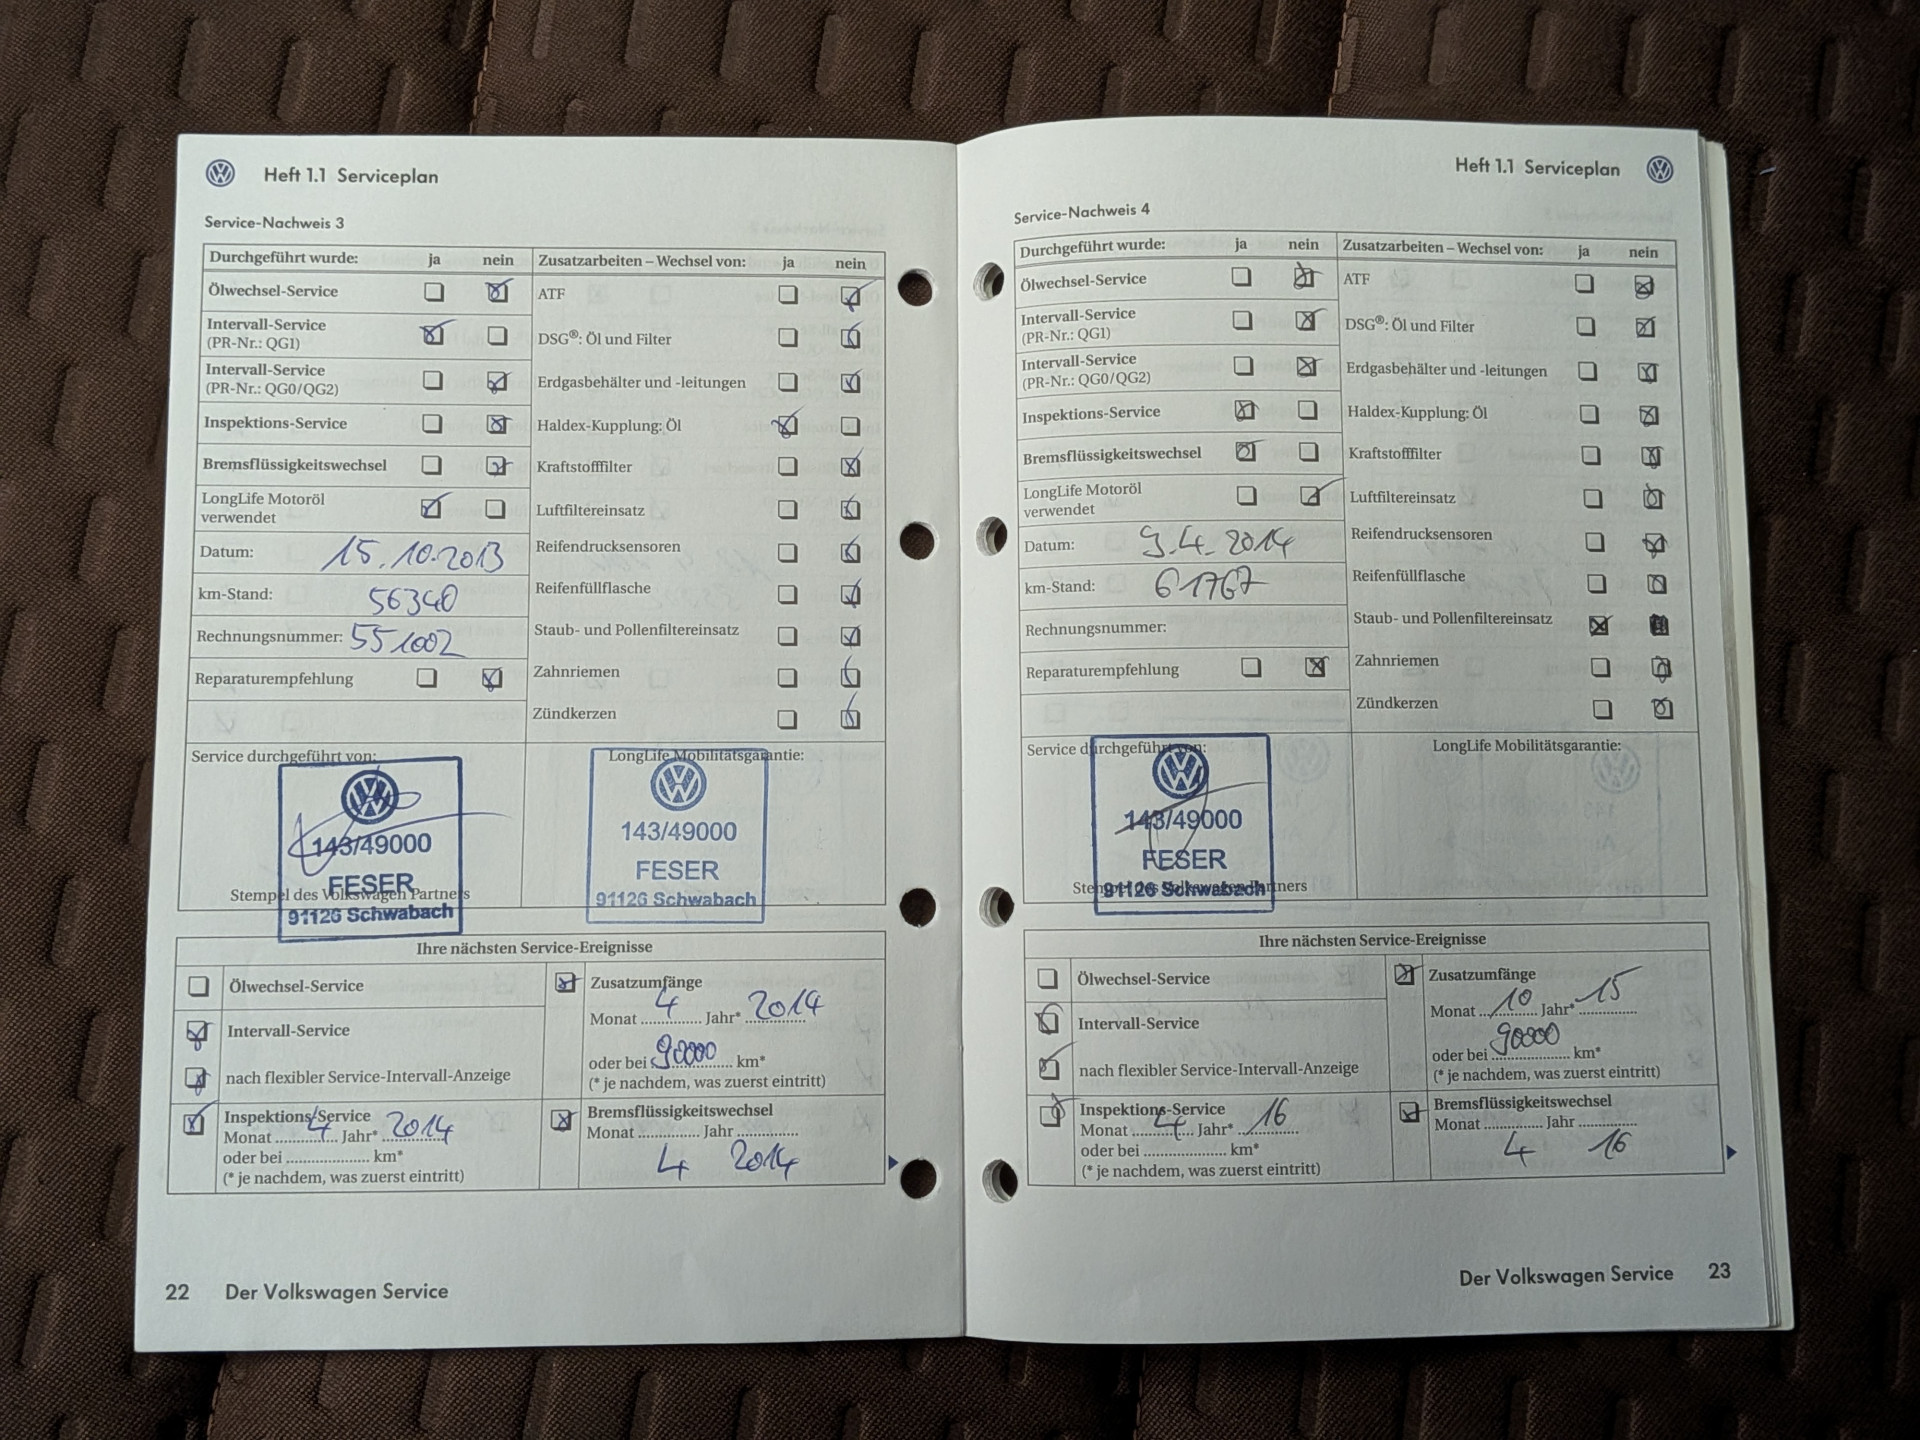 Heft 1.1 Serviceplan
Service-Nachweis 3
Durchgeführt wurde: ja nein
Ölwechsel-Service
Intervall-Service
(PR-Nr.: QG1)
Intervall-Service
(PR-Nr.: QG0/QG2)
Inspektions-Service
Bremsflüssigkeitswechsel
LongLife Motoröl
verwendet
Datum: 15.10.2013
km-Stand: 56340
Rechnungsnummer: 551002
Reparaturempfehlung
Zusatzarbeiten – Wechsel von: ja nein
ATF
DSG®: Öl und Filter
Erdgasbehälter und -leitungen
Haldex-Kupplung: Öl
Kraftstofffilter
Luftfiltereinsatz
Reifendrucksensoren
Reifenfüllflasche
Staub- und Pollenfiltereinsatz
Zahnriemen
Zündkerzen
Service durchgeführt von:
143/49000
FESER
Stempel des Volkswagen Partners
91126 Schwabach
LongLife Mobilitätsgarantie:
143/49000
FESER
91126 Schwabach
Ihre nächsten Service-Ereignisse
Ölwechsel-Service
Intervall-Service
nach flexibler Service-Intervall-Anzeige
Inspektions-Service
Monat 4 Jahr* 2014
oder bei .................... km*
(* je nachdem, was zuerst eintritt)
Zusatzumfänge
Monat 4 Jahr* 2014
oder bei 90000 km*
(* je nachdem, was zuerst eintritt)
Bremsflüssigkeitswechsel
Monat ............... Jahr ...............
4 2014
22 Der Volkswagen Service
Heft 1.1 Serviceplan
Service-Nachweis 4
Durchgeführt wurde: ja nein
Ölwechsel-Service
Intervall-Service
(PR-Nr.: QG1)
Intervall-Service
(PR-Nr.: QG0/QG2)
Inspektions-Service
Bremsflüssigkeitswechsel
LongLife Motoröl
verwendet
Datum: 9.4.2014
km-Stand: 61767
Rechnungsnummer:
Reparaturempfehlung
Zusatzarbeiten – Wechsel von: ja nein
ATF
DSG®: Öl und Filter
Erdgasbehälter und -leitungen
Haldex-Kupplung: Öl
Kraftstofffilter
Luftfiltereinsatz
Reifendrucksensoren
Reifenfüllflasche
Staub- und Pollenfiltereinsatz
Zahnriemen
Zündkerzen
Service durchgeführt von:
143/49000
FESER
Stempel des Volkswagen Partners
91126 Schwabach
LongLife Mobilitätsgarantie:
Ihre nächsten Service-Ereignisse
Ölwechsel-Service
Intervall-Service
nach flexibler Service-Intervall-Anzeige
Inspektions-Service
Monat 4 Jahr* 16
oder bei .................... km*
(* je nachdem, was zuerst eintritt)
Zusatzumfänge
Monat 10 Jahr* 15
oder bei 90000 km*
(* je nachdem, was zuerst eintritt)
Bremsflüssigkeitswechsel
Monat ............... Jahr ...............
4 16
Der Volkswagen Service 23